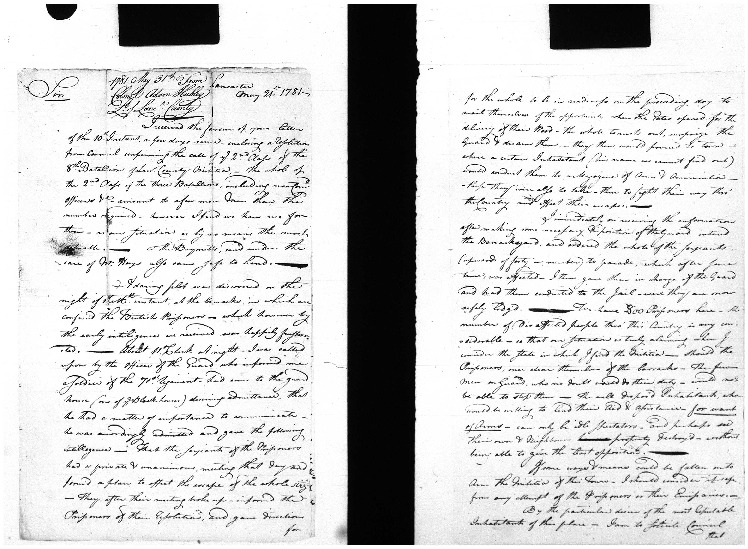 1781 May 31st from
Colonel Adam Hubley
Lt of Lanr County
Lancaster
May 21st 1781
Sir
I received the favour of your letter
of the 10th Instant a few days since, enclosing a resolution
from Council countermanding the call of ye 2nd Class of the
8th Battalion of this County
the 2nd Class of the three Battalions, including
officers &c amount to a few more Men than that
number required. however I find we have no
them in our situation is by no means the most
and under the
care of Mr. Hays also came safe to hand.
A daring plot was discovered on the
night of the instant, at the barracks in which are
confined the British Prisoners which however by
the early intelligence we received was happily frustra
ted. About 11 o'Clock at night I was called
upon by the Officer of the Guard who informed me
a Soldier of the 71st Regiment had come to the guard
house (one of ye Block houses) desiring admittance, that
he had a matter of importance to communicate
he was accordingly admitted and gave the following
intelligence That the serjeants of the Prisoners
had a private & unanimous meeting that day and
formed a plan to effect the escape of the whole
They after their meeting broke up informed the
Prisoners of their Resolution, and gave directions
for
for the whole to be in readiness on the preceeding day to
avail themselves of the opportunity when the Gates opened for the
delivery of their Wood the whole to rush out, surprize the
Guard & disarm them they then would proceed to town
where a certain Inhabitant (his name we cannot find out)
would conduct them to a Magazine of Arms & Ammunition
they were also to take then to fight their way thro'
the Country and effect their escape.
I immediately on receiving the information
after making some necessary Disposition of the guard entered
the Barrackyard, and ordered the whole of the serjeants
(upwards of forty in number) to parade, which after some
time was effected I then gave them in charge of the Guard
and had them conducted to the Jail where they are now
safely Lodg'd We have 800 Prisoners here the
number of Disaffected people thro' this County is very con
siderable so that our situation is truly alarming when I
consider the state in which I find the Militia should the
Prisoners once clear themselves of the Barracks The few
Men on Guard, who no doubt would do their duty would not
be able to stop them the well disposed Inhabitants who
would be willing to lend their Aid & assistance for want
of Arms can only be idle Spectators. and perhaps see
their own & Neighbours property destroyed without
being able to give the least opposition.
If some ways & means could be fallen on to
Arm the Militia of this Town I should consider it safe
from any attempt of the Prisoners or their Emissaries
By the particular desire of the most reputable
Inhabitants of this place I am to solicit Council
that